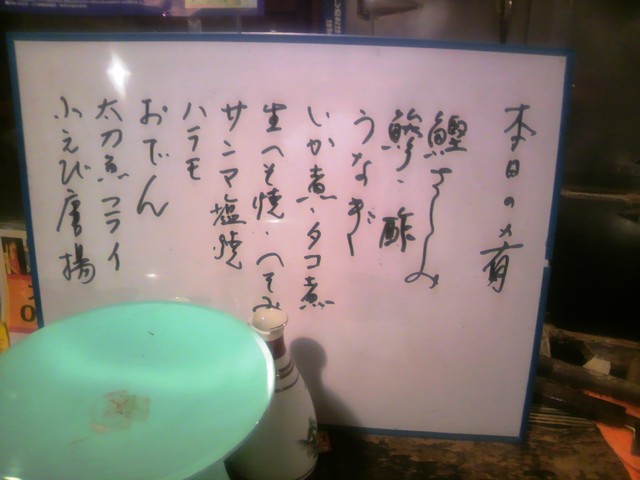 本日の肴
鰹さしみ
鯵く酢
うなぎ
いか煮、タコ煮
生へそ焼 へそみ
サンマ塩焼
ハラモ
おでん
太刀魚フライ
小えび唐揚